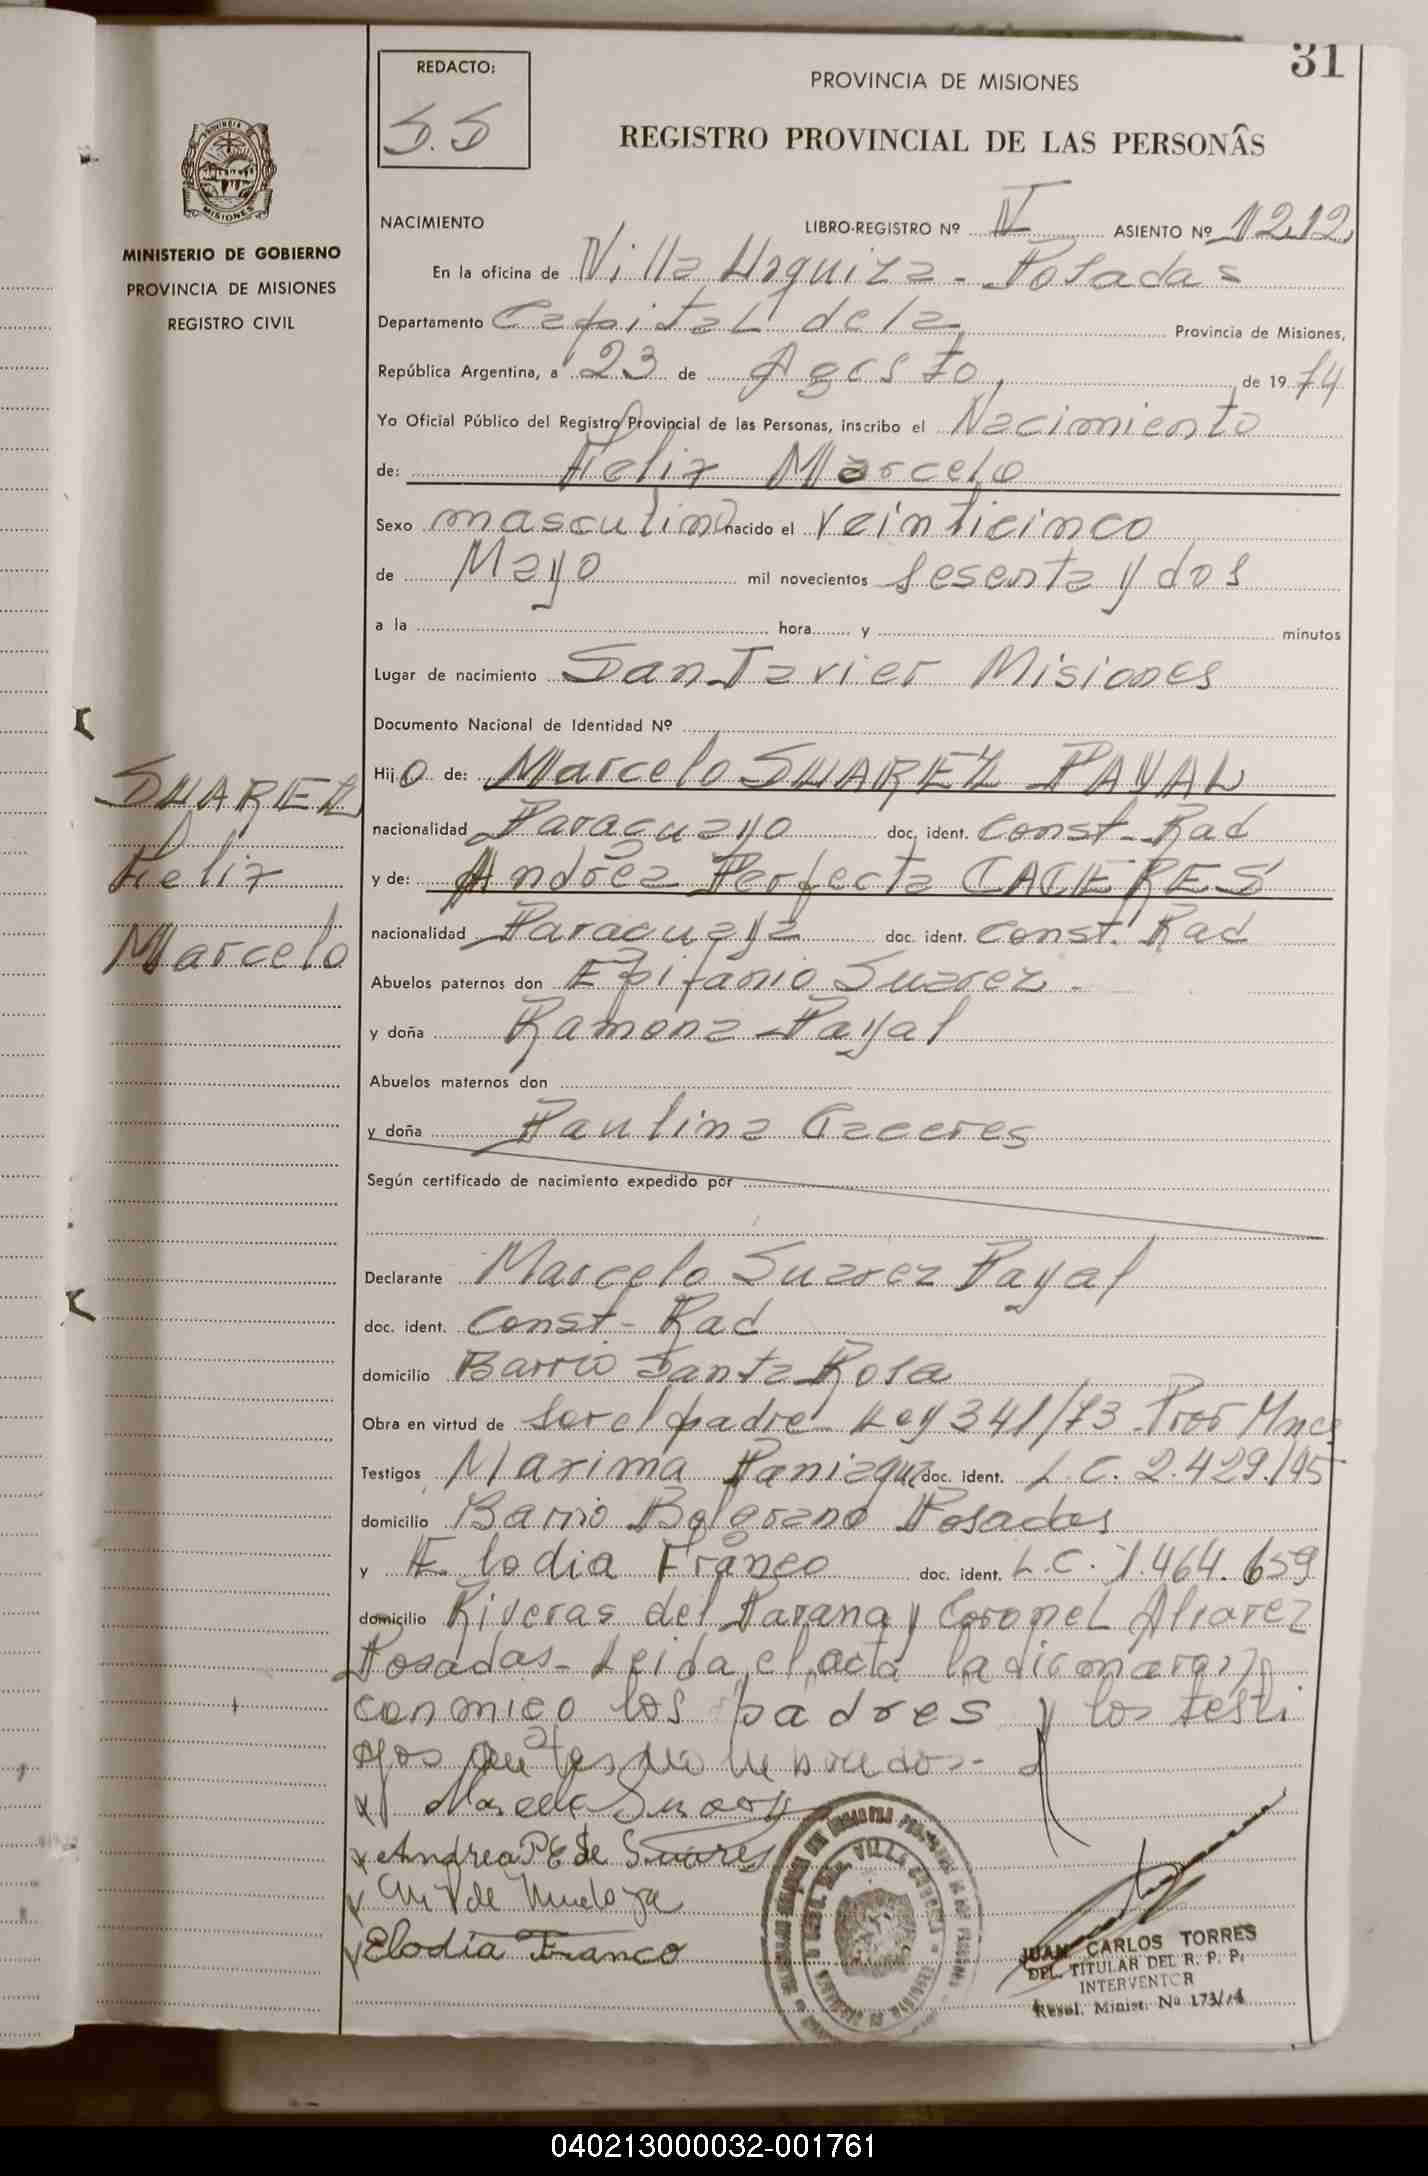 31
REDACTO:
S.S
PROVINCIA DE MISIONES
REGISTRO PROVINCIAL DE LAS PERSONAS
PROVINCIA DE
MISIONES
MINISTERIO DE GOBIERNO
PROVINCIA DE MISIONES
REGISTRO CIVIL
NACIMIENTO LIBRO-REGISTRO Nº V ASIENTO Nº 1212
En la oficina de Villa Urquiza - Posadas
Departamento Capital de la Provincia de Misiones,
República Argentina, a 23 de Agosto, de 1974
Yo Oficial Público del Registro Provincial de las Personas, inscribo el Nacimiento
de: Felix Marcelo
Sexo masculino nacido el veinticinco
de Mayo mil novecientos sesenta y dos
a la hora y minutos
Lugar de nacimiento San Javier Misiones
Documento Nacional de Identidad Nº
Hijo de: Marcelo SUAREZ PAYAL
nacionalidad Paraguayo doc. ident. Const. Rad
y de: Andréa Perfecta CACERES
nacionalidad Paraguaya doc. ident. Const. Rad
Abuelos paternos don Epifanio Suarez -
y doña Ramona Payal
Abuelos maternos don
y doña Paulina Caceres
Según certificado de nacimiento expedido por
SUAREZ
Felix
Marcelo
Declarante Marcelo Suarez Payal
doc. ident. Const - Rad
domicilio Barrio Santa Rosa
Obra en virtud de ser el padre Ley 341/73
Testigos Maxima doc. ident. L.C. 2.429.145
domicilio Barrio Belgrano Posadas
y Elodia Franco doc. ident. L.C. 1.464.659
domicilio Riveras del Parana y Coronel Alvarez
Posadas - Leida el acta la firmaran
conmigo los padres y los testi
gos antes nombrados -
Marcelo Suarez
Andrea P C de Suares
de Mendoza
Elodia Franco
JUAN CARLOS TORRES
DEL. TITULAR DEL R. P. P.
INTERVENTOR
Resol. Minist. Nº 173/74
040213000032-001761